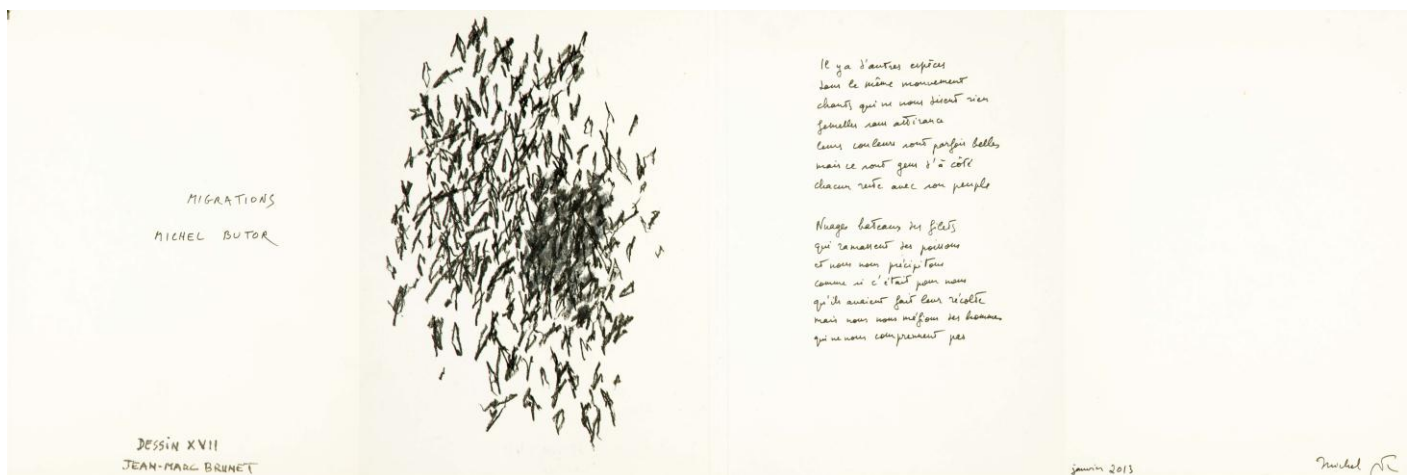 MIGRATIONS
MICHEL BUTOR
DESSIN XVII
JEAN-MARC BRUNET
Il y a d'autres espèces
dans le même mouvement
chants qui ne nous disent rien
femelles sans attirance
leurs couleurs sont parfois belles
mais ce sont gens d'à côté
chacun reste avec son peuple
Nuages bateaux des filets
qui ramassent des poissons
et nous nous précipitons
comme si c'était pour nous
qu'ils avaient fait leur récolte
mais nous nous méfions des hommes
qui ne nous comprennent pas
janvier 2013
Michel